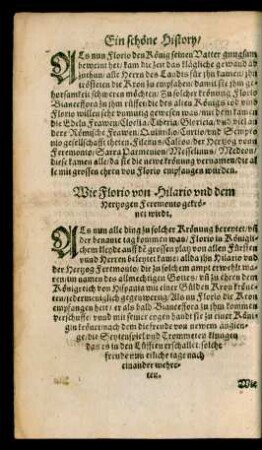 Ein schöne History/
ALs nun Florio den König seinen Vatter gnugsam
beweinet het/ kam die zeit das klägliche gewand ab
zůthun/ alle Herrn des Landts für ihn kamen/ ihn
tröstet en der Kron zu empfahen/ damit sie ihm ge-
horsamkeit schweren möchten/ Zu solcher krönung Florio
Bianceffora zu ihm rüffet/ die des alten Königs tod vnd
Florio willen seht dunutig gewesen was/ mit dem kamen
die Edeln Frawen/ Glorisa/ Tiberia/ Glorieia/ vnd viel an
dere Römische Frawen/ Quintilio/ Curtio/ vnd Sempro
nio gesellschafft theten. Filenus/ Galeon/ der Hertzog von
Feremonto/ Sara/ Parmenion/ Messalinus/ Medion/
diese kamen alle/ da sie die newe krönung vernamen/ die al
le mit grossen ehren von Florio empfangen wurden.
Wie Florio von Hilario vnd dem
Hertzogen Feremonto gekrö-
net wirdt.
ALs nun alle ding zu solcher Krönung bereytet/ vñ
der benante tag kommen was/ Florio in Königli-
chem kleyde auff den grossen platz von allen Fürsten
vnnd Herren beleytet kame: allda ihn Hilario vnd
der Hertzog Feremonto/ die zu solchem ampt erwehlt wa-
ren/ im namen des allmechtigen Gottes/ vñ zu ehren dem
Königreich von Hispania mit einer Gülden Kron kröne-
ten/ jederman glich gegenwertig/ Als nu Florio die Kron
empfangen het/ er als bald Bianceffora zu ihm kommen
verschuffe/ vnnd mit seiner eygen handt sie zu einer Köni-
gin krönet/ nach dem die freude von newem angien-
ge/ die Seytenspiel vnd Trommeten klungen
das es in den Lüfften erschallet/ solche
freude nun etliche tage nach
einander wehre-
ten.
Wie